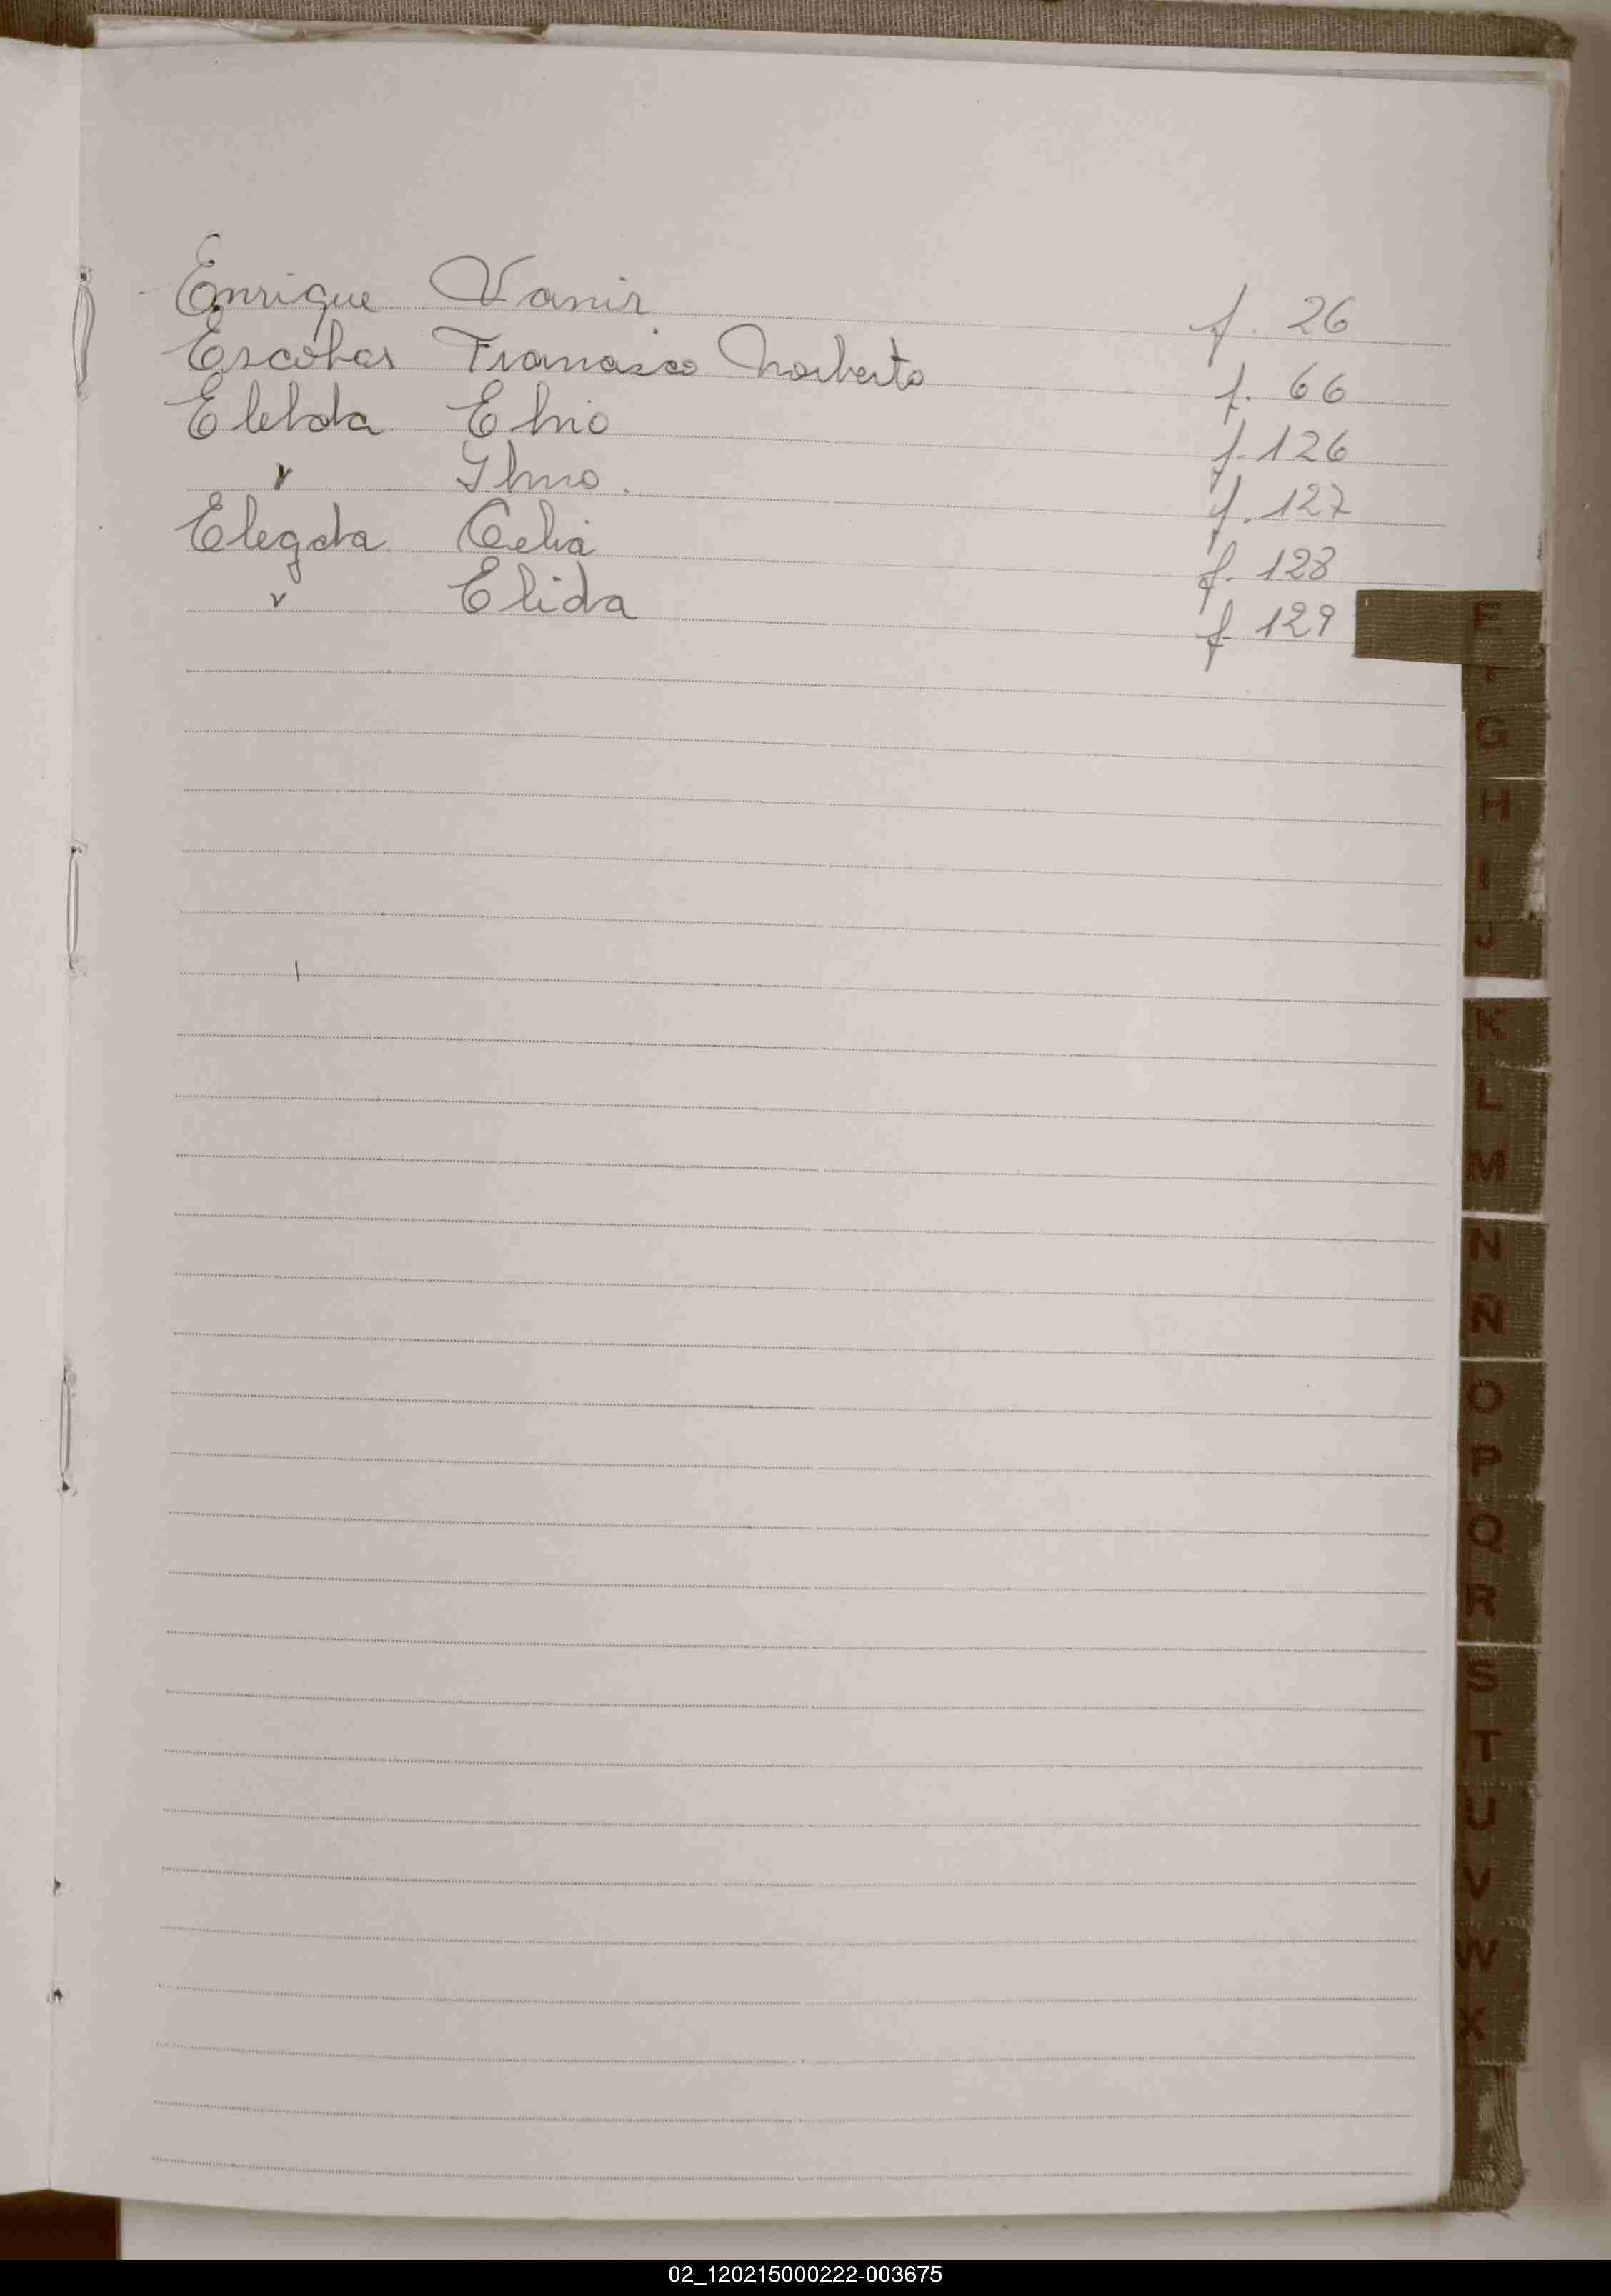 Enrique Vanir f. 26
Escobar Francisco Norberto f. 66
Elebda Elnio f. 126
" Ilmo. f. 127
Elegda Celia f. 128
" Elida f. 129
E
F
G
H
I
J
K
L
M
N
Ñ
O
P
Q
R
S
T
U
V
W
X
02_120215000222-003675